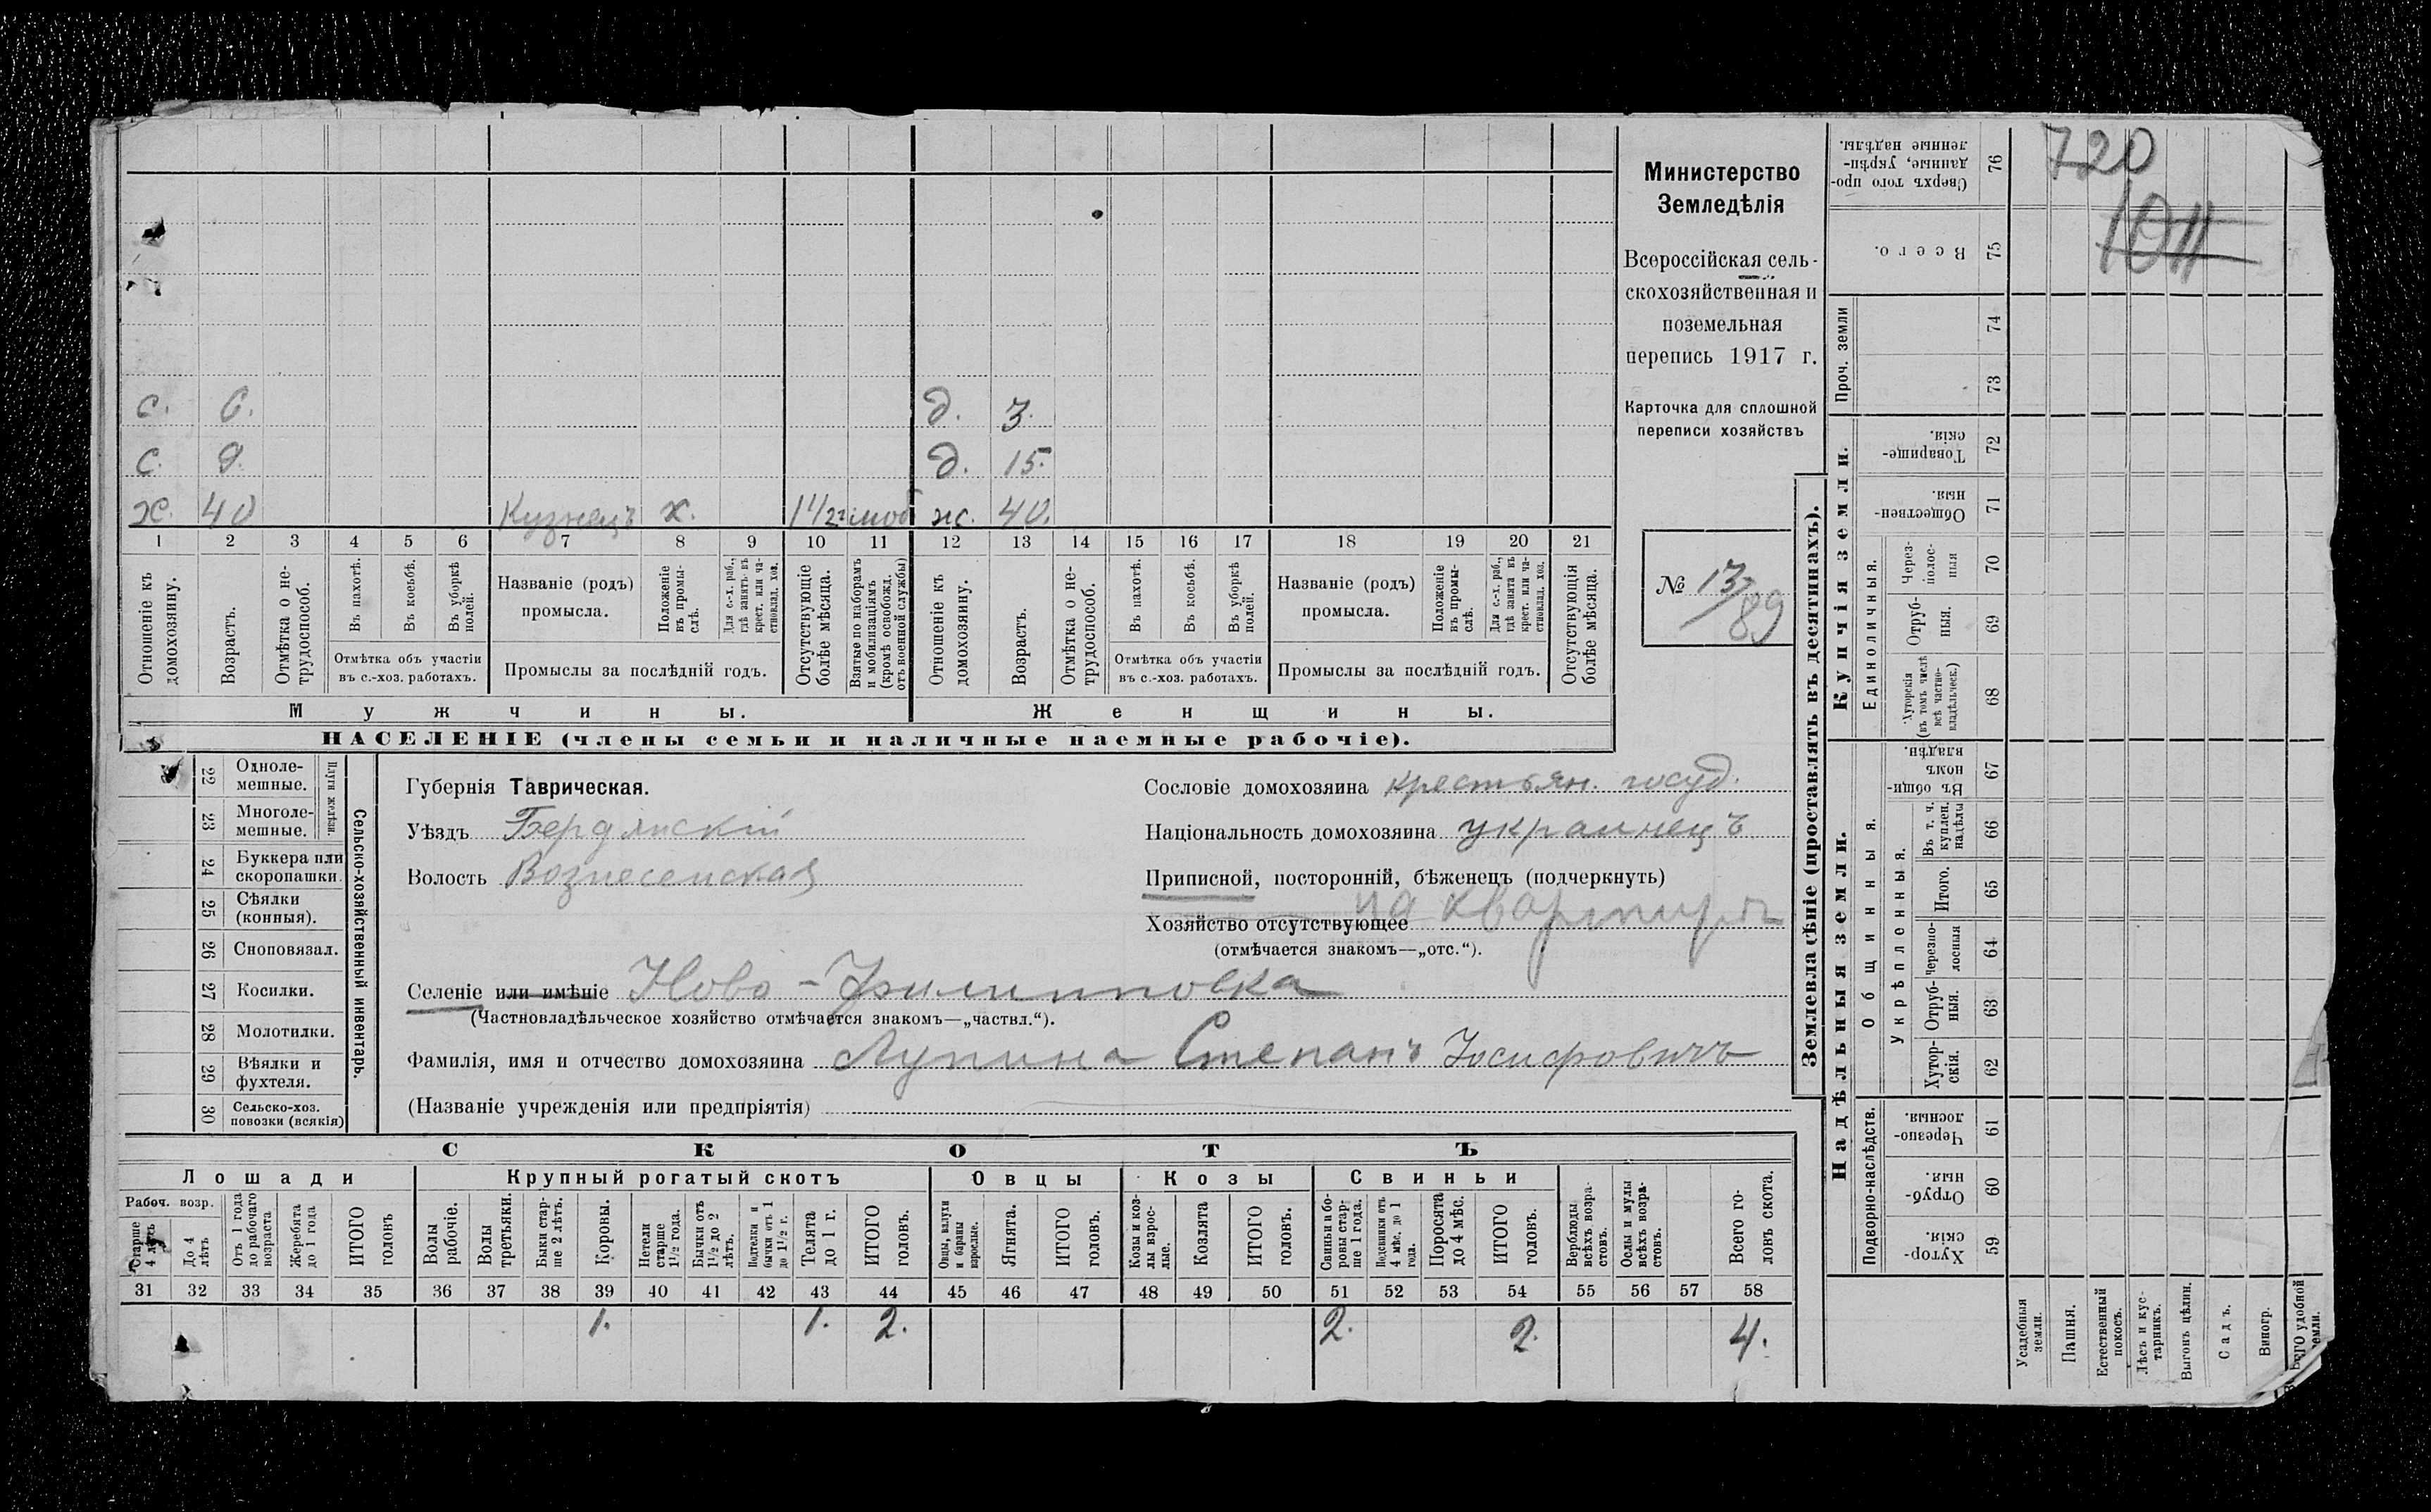 720
1011
Министерство
Земледѣлія
Всероссійская сель-
скохозяйственная и
поземельная
перепись 1917 г.
Карточка для сплошной
переписи хозяйствъ
№ 13/89
с. 6. д. 3.
с. 9. д. 15.
х. 40 Кузнецъ х. 1½ г. моб ж. 40.
1 2 3 4 5 6 7 8 9 10 11 12 13 14 15 16 17 18 19 20 21
Отношеніе къ домохозяину.
Возрастъ.
Отмѣтка о не-трудоспособ.
Въ пахотѣ.
Въ косьбѣ.
Въ уборкѣ полей.
Отмѣтка объ участіи
въ с.-хоз. работахъ.
Названіе (родъ)
промысла.
Положеніе въ промы-слѣ.
Для с.-х. раб., гдѣ занятъ въ крест. или ча-стновлад. хоз.
Промыслы за послѣдній годъ.
Отсутствующіе болѣе мѣсяца.
Взятые по наборамъ и мобилизаціямъ (кромѣ освобожд. отъ военной службы)
Отношеніе къ домохозяину.
Возрастъ.
Отмѣтка о не-трудоспособ.
Въ пахотѣ.
Въ косьбѣ.
Въ уборкѣ полей.
Отмѣтка объ участіи
въ с.-хоз. работахъ.
Названіе (родъ)
промысла.
Положеніе въ промы-слѣ.
Для с.-х. раб., гдѣ занята въ крест. или ча-стновлад. хоз.
Промыслы за послѣдній годъ.
Отсутствующія болѣе мѣсяца.
Мужчины. Женщины.
НАСЕЛЕНІЕ (члены семьи и наличные наемные рабочіе).
Сельско-хозяйственный инвентарь.
Плуги желѣзн.
22 Одноле-мешные.
23 Многоле-мешные.
24 Буккера или скоропашки.
25 Сѣялки (конныя).
26 Сноповязал.
27 Косилки.
28 Молотилки.
29 Вѣялки и фухтеля.
30 Сельско-хоз. повозки (всякія)
Губернія Таврическая.
Уѣздъ Бердянскій
Волость Вознесенская
Сословіе домохозяина крестьян. госуд.
Національность домохозяина украинецъ
Приписной, посторонній, бѣженецъ (подчеркнуть)
на квартирѣ
Хозяйство отсутствующее
(отмѣчается знакомъ—„отс.“).
Селеніе или имѣніе Ново-Филипповка
(Частновладѣльческое хозяйство отмѣчается знакомъ—„частвл.“).
Фамилія, имя и отчество домохозяина Лупина Степанъ Іосифовичъ
(Названіе учрежденія или предпріятія)
СКОТЪ
Лошади Крупный рогатый скотъ Овцы Козы Свиньи
Рабоч. возр.
Старше 4 лѣтъ
До 4 лѣтъ
Отъ 1 года до рабочаго возраста
Жеребята до 1 года
ИТОГО головъ
Волы рабочіе.
Волы третьяки.
Быки стар-ше 2 лѣтъ.
Коровы.
Нетели старше 1½ года.
Бычки отъ 1½ до 2 лѣтъ.
Подтелки и бычки отъ 1 до 1½ г.
Телята до 1 г.
ИТОГО головъ.
Овцы, валухи и бараны взрослые.
Ягнята.
ИТОГО головъ.
Козы и коз-лы взрос-лые.
Козлята
ИТОГО головъ.
Свиньи и бо-ровы стар-ше 1 года.
Подсвинки отъ 4 мѣс. до 1 года.
Поросята до 4 мѣс.
ИТОГО головъ.
Верблюды всѣхъ возра-стовъ.
Ослы и мулы всѣхъ возра-стовъ.
Всего го-ловъ скота.
31 32 33 34 35 36 37 38 39 40 41 42 43 44 45 46 47 48 49 50 51 52 53 54 55 56 57 58
1. 1. 2. 2. 2. 4.
Землевладѣніе (проставлять въ десятинахъ).
Надѣльныя земли. Купчія земли.
Проч. земли
Подворно-наслѣдств.
Общинныя.
Укрѣпленныя.
Единоличныя.
76 Сверхъ того про-данные, укрѣп-ленные надѣлы.
75 Всего.
74
73
72 Товарище-скія.
71 Обществен-ныя.
70 Через-полос-ныя
69 Отруб-ныя.
68 Хуторскія (въ томъ числѣ всѣ частно-владѣльческ.)
67 Въ общи-номъ владѣн.
66 Въ т. ч. куплен. надѣлы
65 Итого.
64 Черезпо-лосныя
63 Отруб-ныя.
62 Хутор-скія.
61 Черезпо-лосныя.
60 Отруб-ныя.
59 Хутор-скія.
Усадебныя земли.
Пашня.
Естественный покосъ.
Лѣсъ и кус-тарникъ.
Выгонъ цѣлин.
Садъ.
Виногр.
Всего удобной земли.